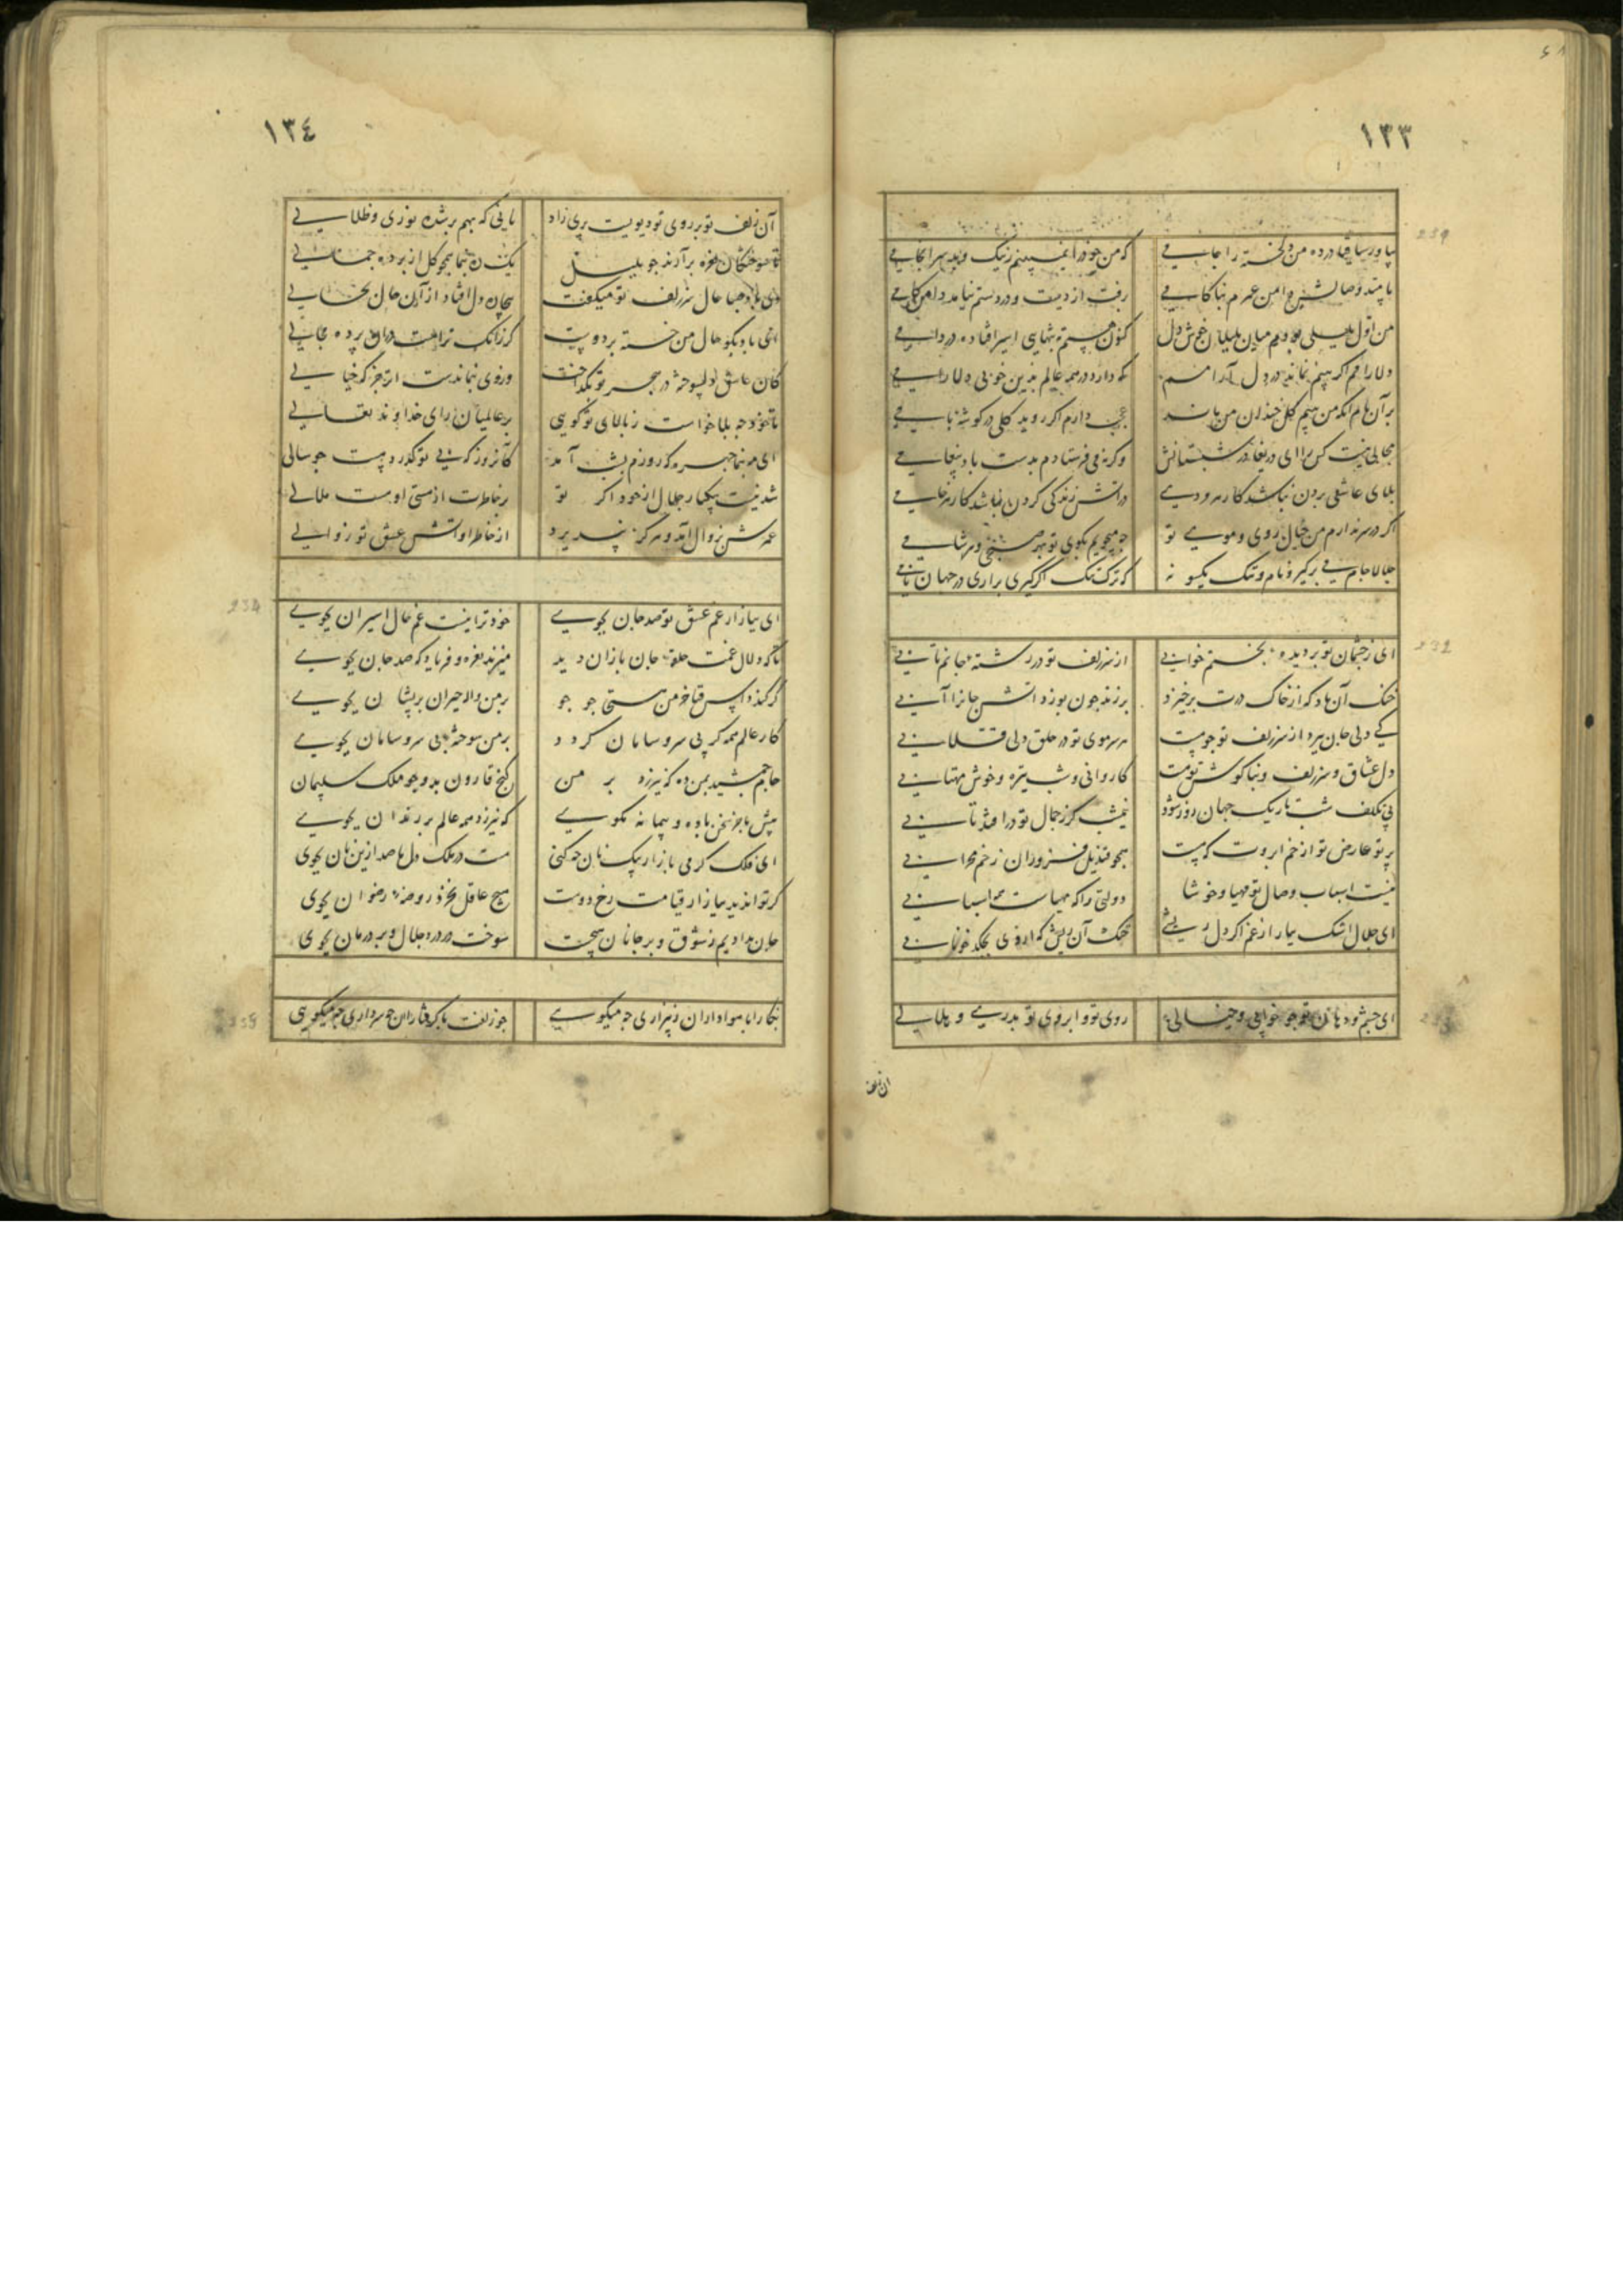 ١٣٣
بیاور ساقیا در ده من دلخسته را جامی که من خود را نمی‌بینم ز نیک و بد سرانجامی
به امید وصالش من عمرم بناکامی رفت از دست و در دستم نیامد دامن کامی
من اول بلبلی بودم میان بلبلان خوش دل کنون هستم بتنهایی اسیر افتاده در دامی
دلارامم اگر بینم نماند در دل آرامم که دارد در همه عالم بدین خوبی دلارامی
بر آن بام آنکه من بینم گل خندان من باشد عجب دارم اگر روید گلی در گوشه بامی
مجالی نیست کس را ای دریغا در شبستانش وگرنه می فرستادم بدست باد پیغامی
بلای عاشقی بردن نباشد کار هر دردی در آتش زندگی کردن نباشد کار هر خامی
اگر در سر ندارم من خیال روی و موی تو چه میجویم بکوی تو بهر صبحی و هر شامی
جلالا جام می برگیر و نام و ننگ یکسو نه که ترک ننگ اگر گیری براری در جهان نامی
ای ز چشمان تو بر دیده بختم خوابی از سر زلف تو در رشته جانم تابی
خنک آن باد که از خاک درت برخیزد بر زند چون بوزد آتش جانرا آبی
کی دلی جان ببرد از سر زلف تو چو هست هر سر موی تو در حلق دلی قلابی
دل عشاق و سر زلف و بناگوش تو هست کاروانی و شب تیره و خوش مهتابی
بی تکلف شب تاریک جهان روز شود نیمشب گر ز جمال تو در افتد تابی
پرتو عارض تو از خم ابروت که هست همچو قندیل فروزان ز خم محرابی
نیست اسباب وصال تو مهیا و خوشا دولتی را که مهیاست همه اسبابی
ای جلال اشک ببار از غم اگر دل ریشی خنک آن ریش که از وی بچکد خونابی
ای چشم و دهان تو چو خوابی و خیالی روی تو و ابروی تو بدری و هلالی
آن زلف
١٣٤
آن زلف تو بر روی تو دیویست پری زاد یا نی که بهم بر شده نوری و ظلالی
تا سوختگان نعره برآرند چو بلبل یک ره بنما همچو گل از پرده جمالی
دی باد صبا حال سر زلف تو میگفت بیچاره دل افتاد از آن حال بحالی
ای باد بگو حال من خسته بر دوست گر زانک ترا هست در آن پرده مجالی
کان عاشق دلسوخته در هجر تو بگداخت وز وی بنماندست اثر جز که خیالی
تا خود چه بلا خواست ز بالای تو گویی بر عالمیان رای خداوند تعالی
ای مه بنما چهره که روزم بشب آمد کان روز که بی تو گذرد هست چو سالی
شد نیست یکبار جلال از خود اگر تو بر خاطرت از هستی او هست ملالی
عمرش بزوال آمد و هرگز نپذیرد از خاطر او آتش عشق تو زوالی
ای ببازار غم عشق تو صد جان بجوی خود ترا نیست غم حال اسیران بجوی
تا که دلال غمت حلقه جان بازان دید میزند نعره و فریاد که صد جان بجوی
بر من واله حیران پریشان بجوی
کار عالم همه گر بی سر و سامان گردد بر من سوخته بی سر و سامان بجوی
جام جمشید بمن ده که نیرزد بر من گنج قارون بدو جو ملک سلیمان بجوی
پیش ما جز سخن باده و پیمانه مگوی که نیرزد همه عالم بر رندان بجوی
ای فلک گرمی بازار بیک نان چه کنی هست در ملک دل ما صد ازین نان بجوی
گر تو آید ببازار قیامت رخ دوست هیچ عاقل نخرد روضه رضوان بجوی
جان بدادیم ز شوق و بر جانان هیچست سوخت در درد جلال و بر درمان بجوی
نگارا با هواداران ز بیزاری چه میگویی چو زلفت با گرفتاران چه سر داری چه میگویی